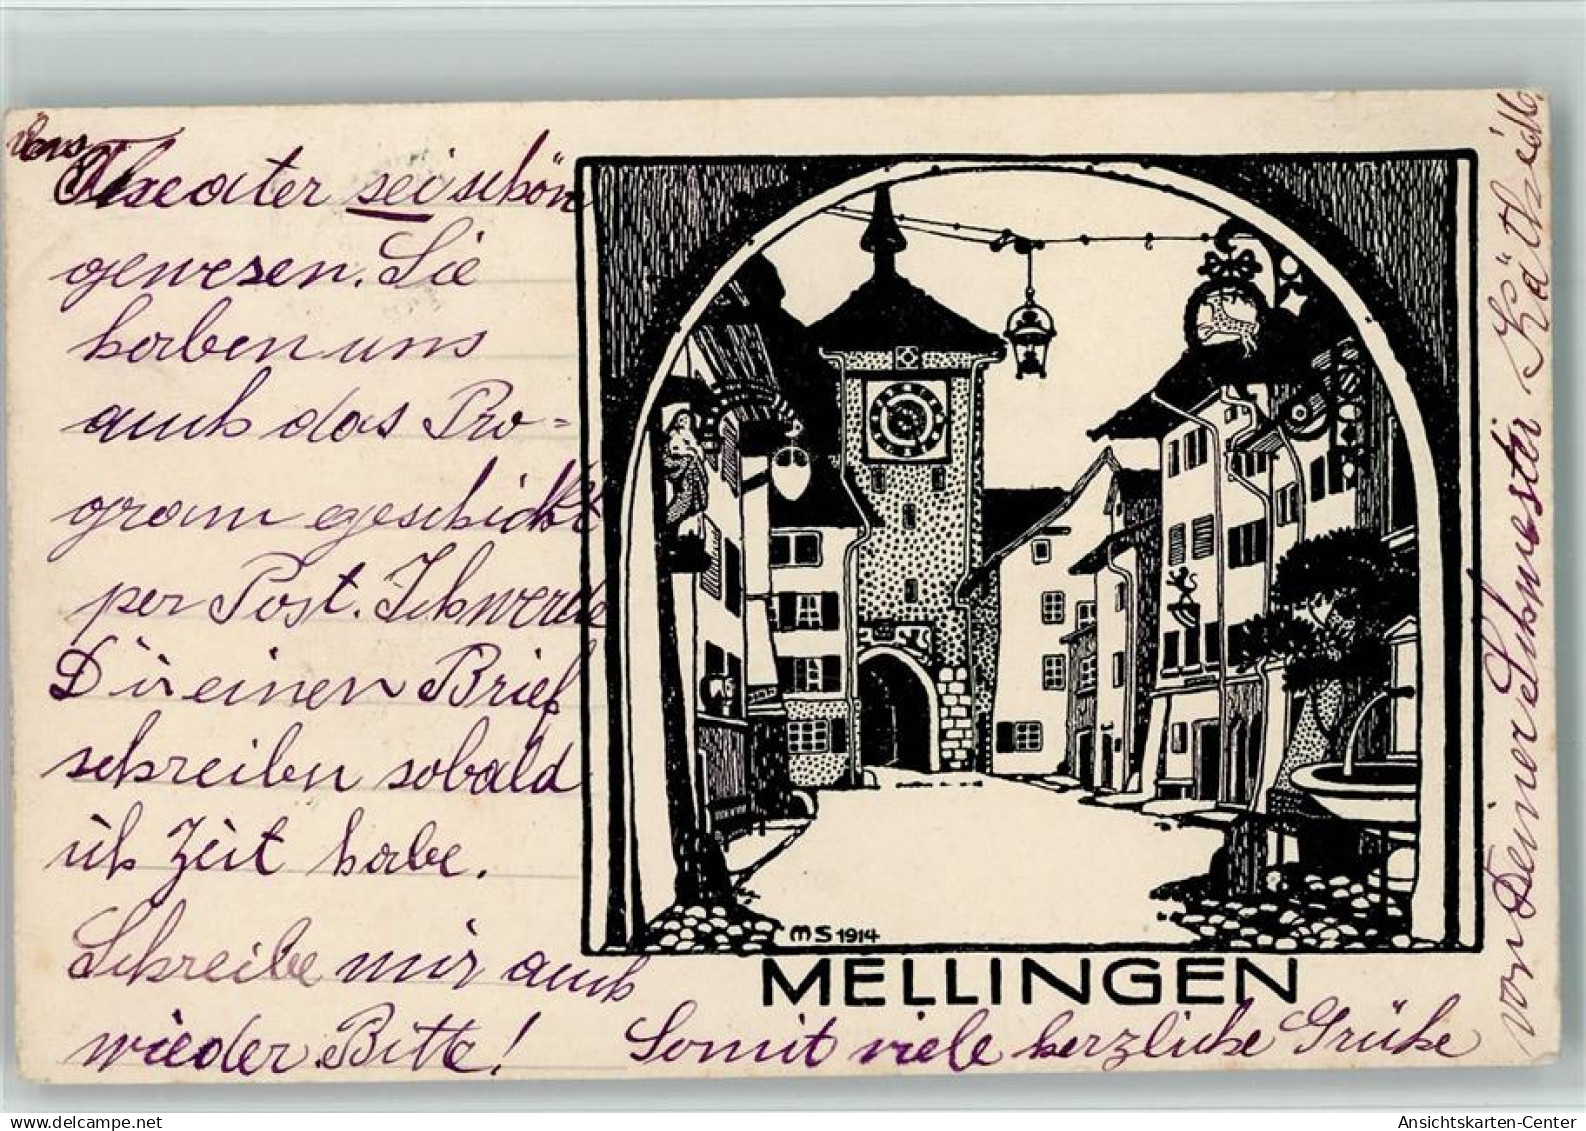 das
Theater sei schön
gewesen. Sie
haben uns
auch das Pro-
gram geschickt
per Post. Ich werde
Dir einen Brief
schreiben sobald
ich Zeit habe.
Schreibe mir auch
wieder. Bitte!
Somit viele herzliche Grüße
von Deiner Schwester Kätheli
MS 1914
MELLINGEN
delcampe.net
Ansichtskarten-Center